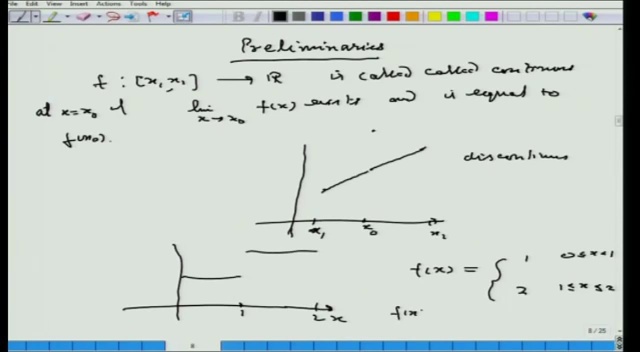 File Edit View Insert Actions Tools Help
Preliminaries
f : [x₁, x₁] → ℝ is called called continuous
at x=x₀ if lim x→x₀ f(x) exists and is equal to
f(x₀).
discontinuous
x₁ x₀ x₂
f(x) = { 1 0≤x<1
2 1≤x≤2
1 2 x f(x
8 / 25
8